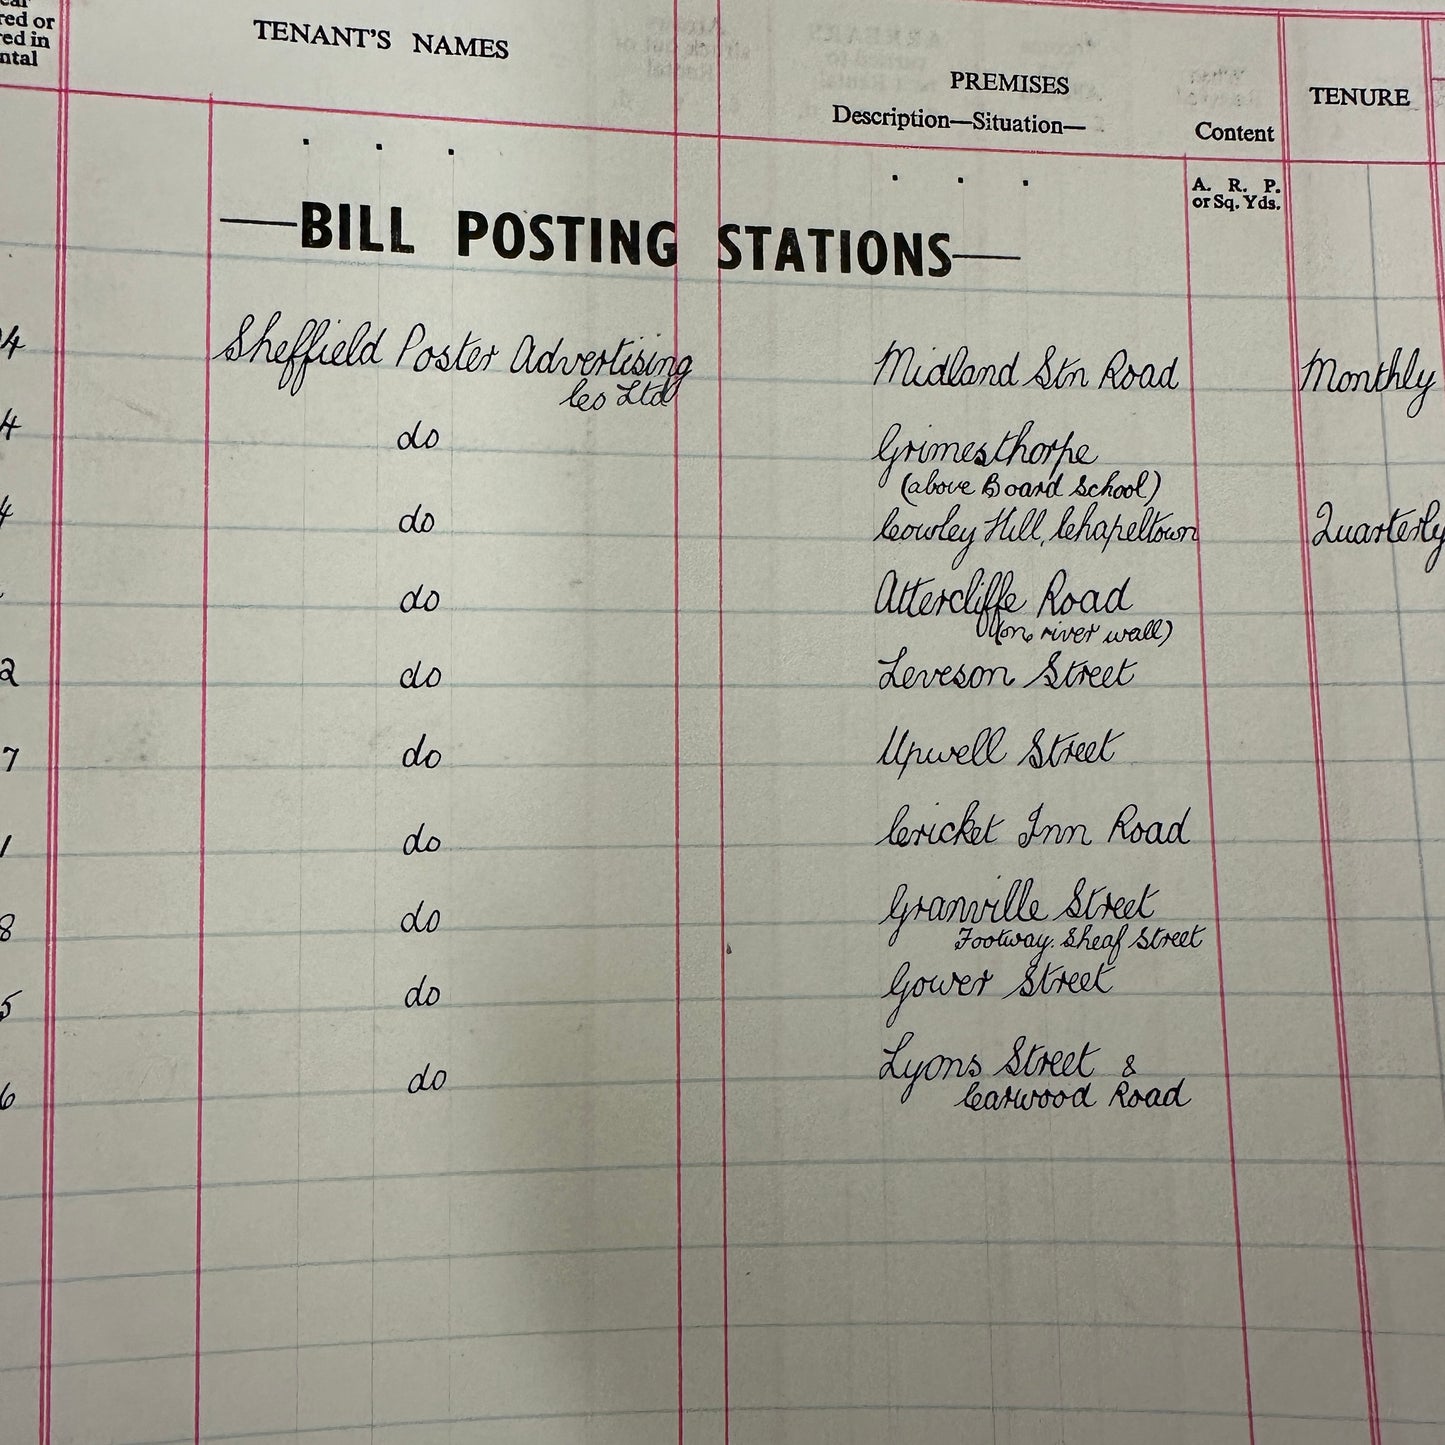 red or
red in
ntal
TENANT'S NAMES
PREMISES
Description—Situation—
Content
TENURE
A. R. P.
or Sq. Yds.
—BILL POSTING STATIONS—
4 Sheffield Poster Advertising Midland Stn Road Monthly
Co Ltd
4 do Grimesthorpe
(above Board School)
4 do Cowley Hill, Chapeltown Quarterly
do Attercliffe Road
(on river wall)
2 do Leveson Street
7 do Upwell Street
1 do Cricket Inn Road
8 do Granville Street
Footway. Sheaf Street
5 do Gower Street
6 do Lyons Street &
Carwood Road